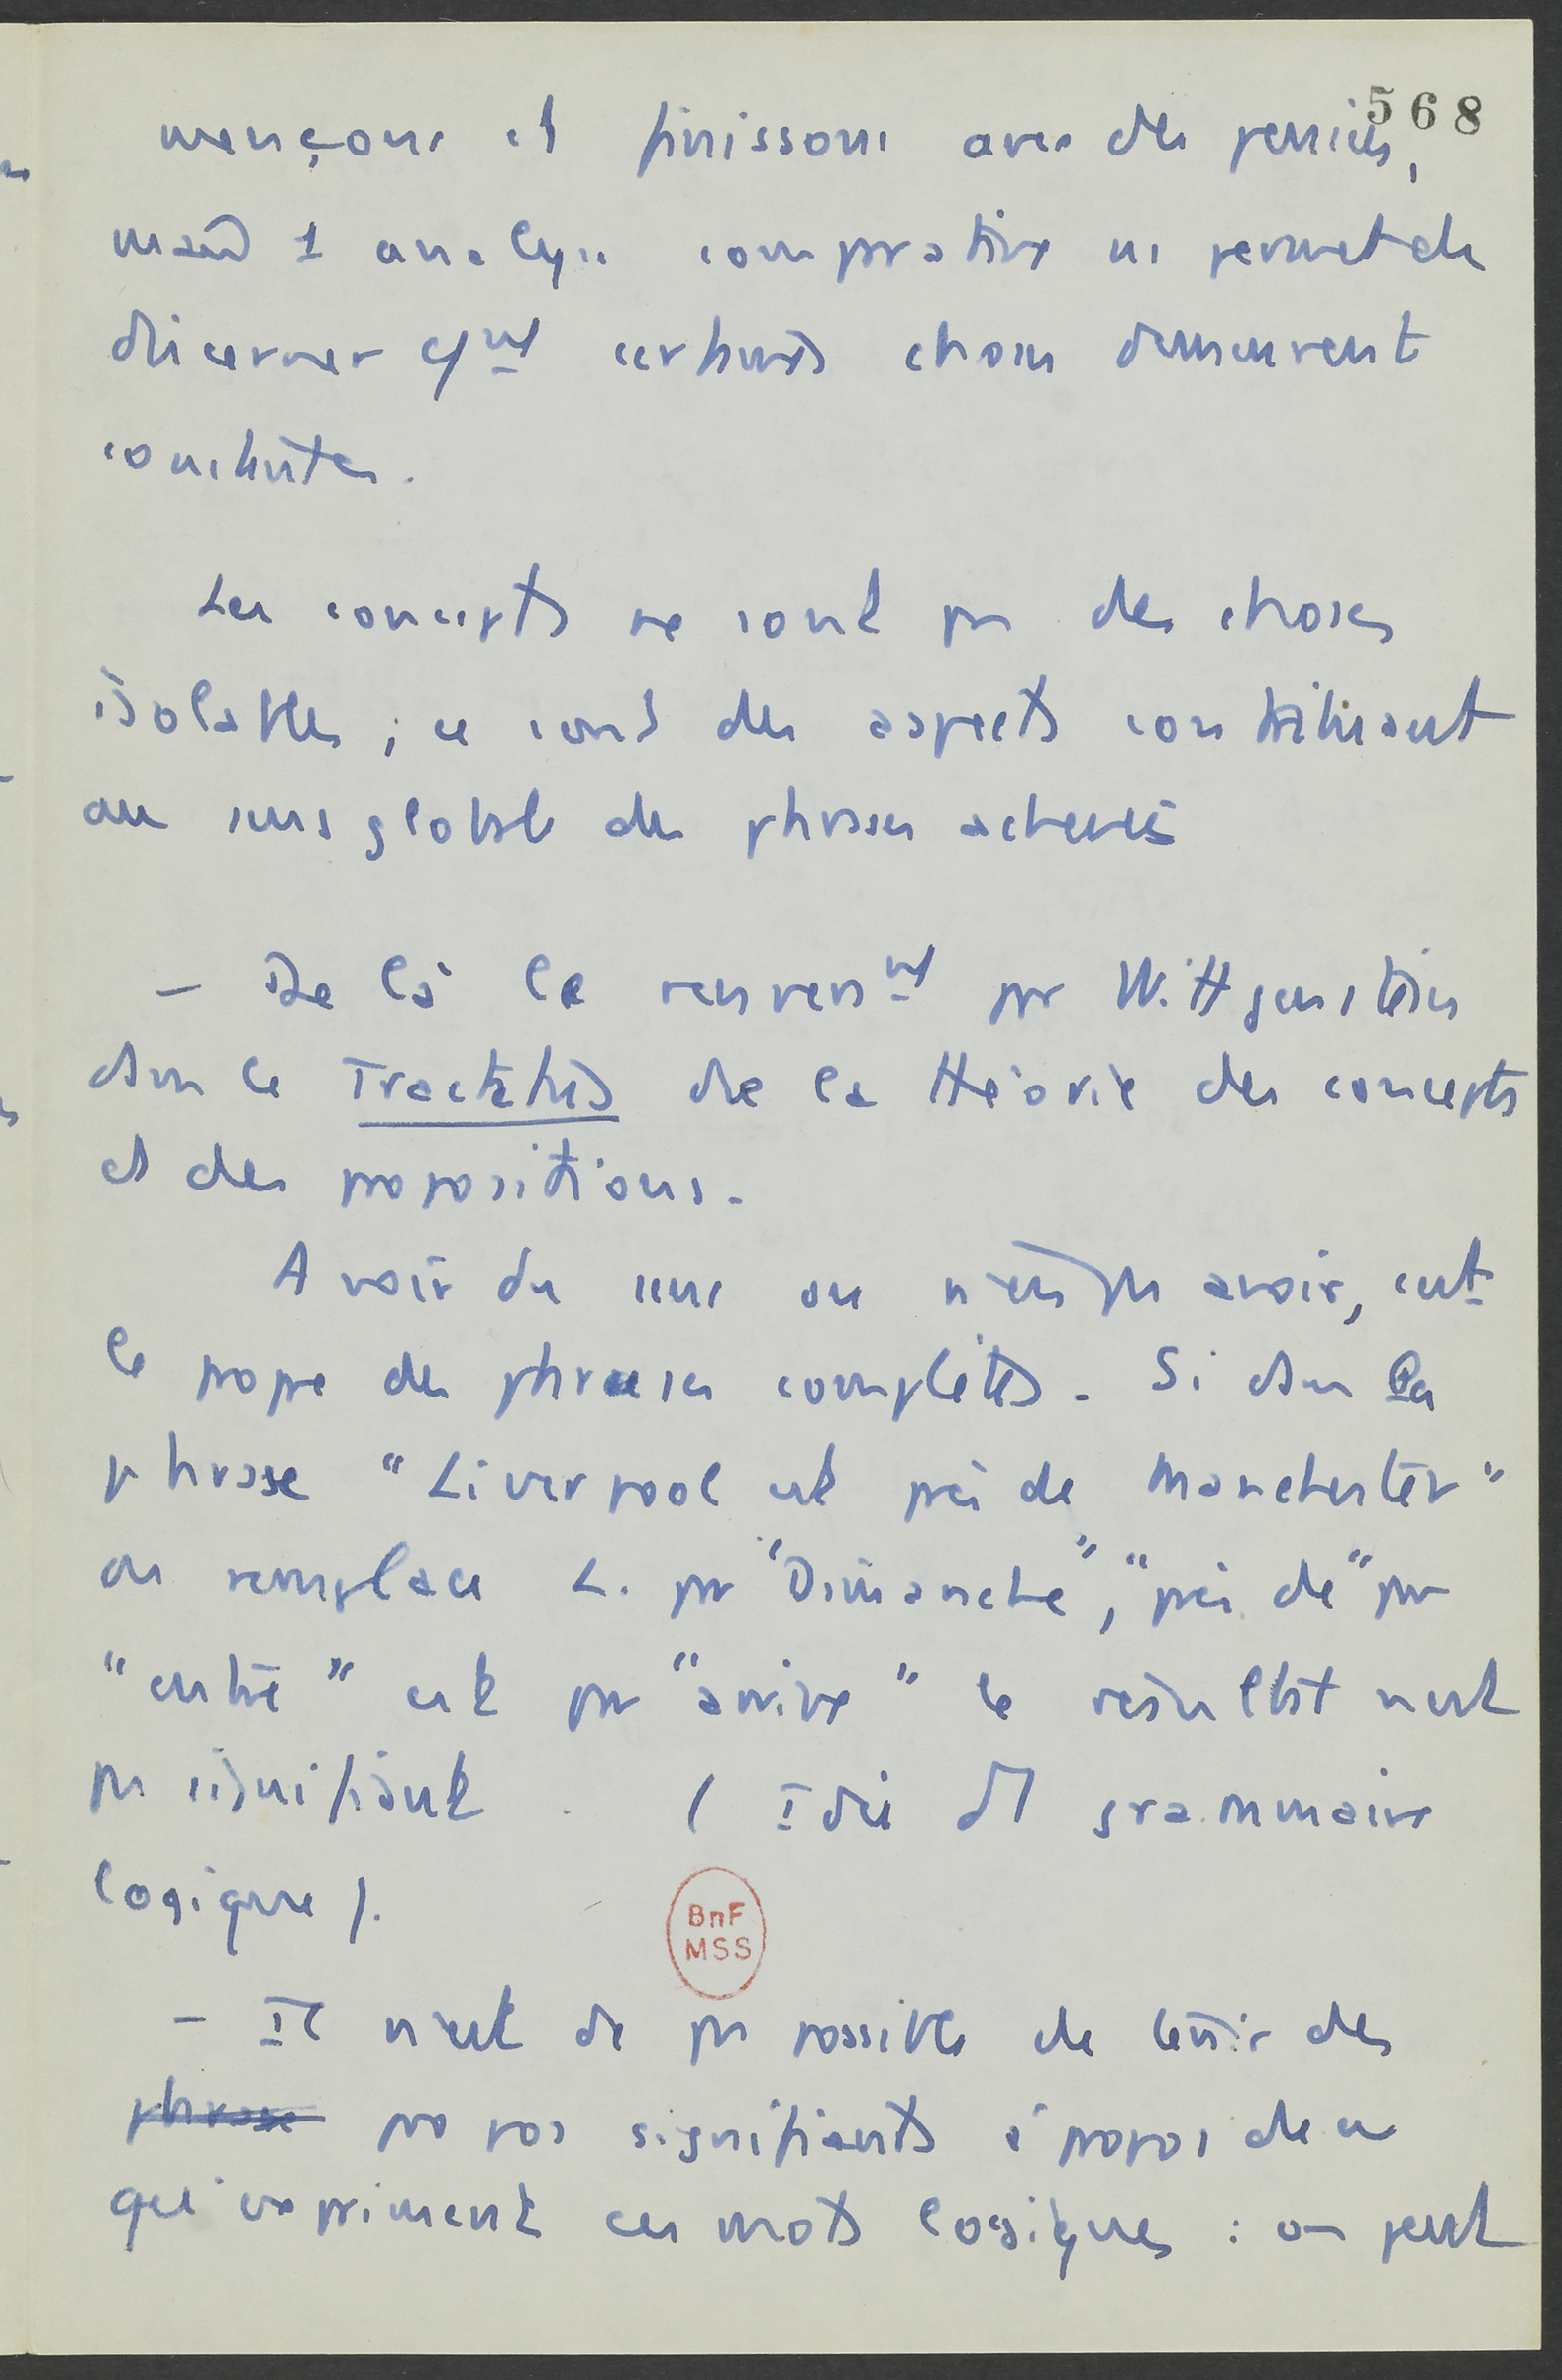 568
mençons et finissons avec des pensées,
mais 1 analyse comparative ns permet de
discerner cmt certaines choses demeurent
constantes.
Les concepts ne sont pas des choses
isolables ; ce sont des aspects contribuant
au sens global des phrases achevées
– De là le renversmt par Wittgenstein
dans le Tractatus de la théorie des concepts
et des propositions.
Avoir du sens ou n'en pas avoir, c'est
le propre des phrases complètes. Si dans la
phrase "Liverpool est près de Manchester"
on remplace L. par "Dimanche", "près de" par
"entre" est par "arrive" le résultat n'est
pas signifiant. (Idée d'1 grammaire
logique).
BnF
MSS
– Il n'est dc pas possible de tenir des
phrase propos signifiants à propos de ce
qu'expriment ces mots logiques : on peut